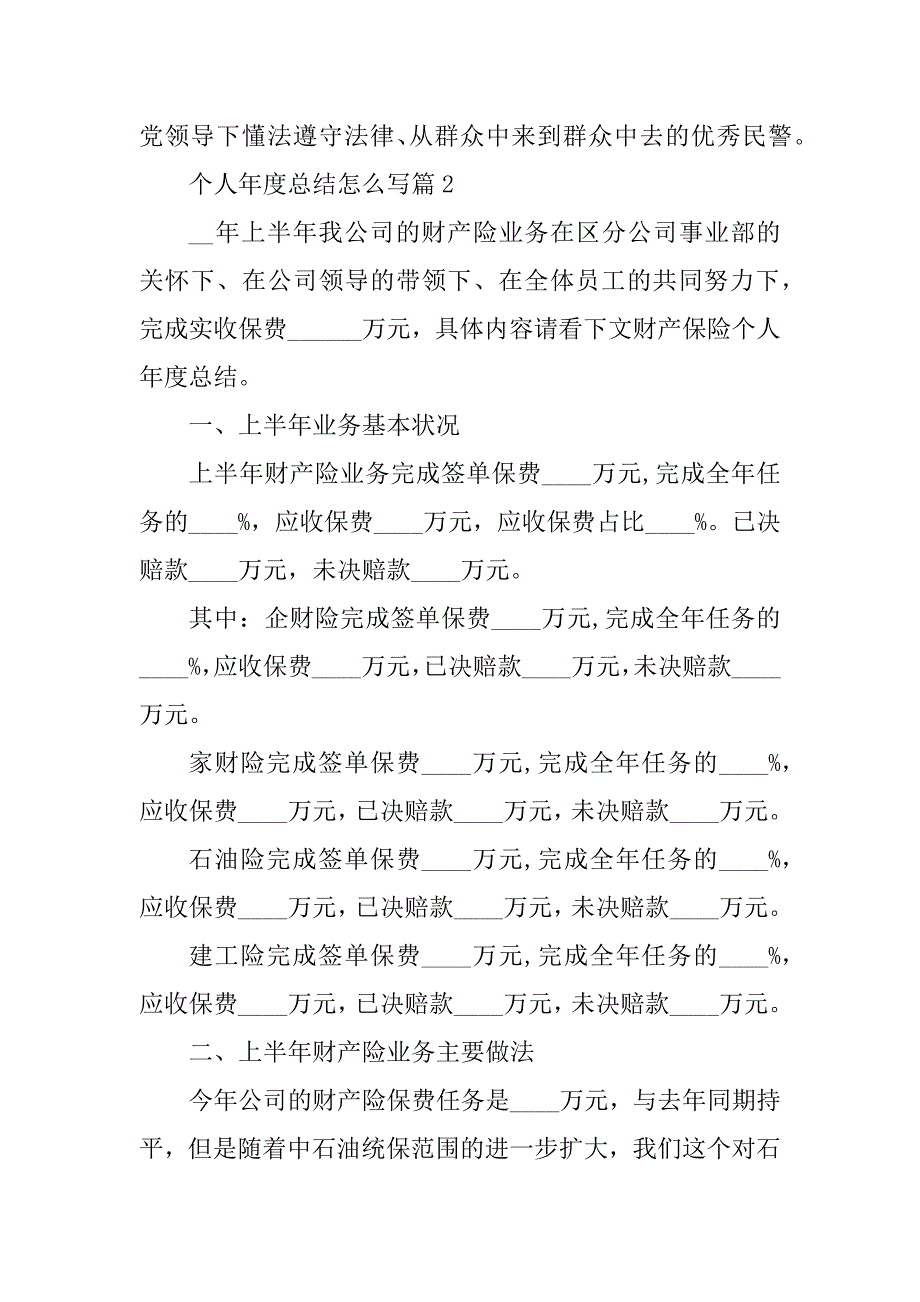 党领导下懂法遵守法律、从群众中来到群众中去的优秀民警。
个人年度总结怎么写篇2
__年上半年我公司的财产险业务在区分公司事业部的
关怀下、在公司领导的带领下、在全体员工的共同努力下，
完成实收保费______万元，具体内容请看下文财产保险个人
年度总结。
一、上半年业务基本状况
上半年财产险业务完成签单保费____万元,完成全年任
务的____%，应收保费____万元，应收保费占比____%。已决
赔款____万元，未决赔款____万元。
其中：企财险完成签单保费____万元,完成全年任务的
____%，应收保费____万元，已决赔款____万元，未决赔款____
万元。
家财险完成签单保费____万元,完成全年任务的____%，
应收保费____万元，已决赔款____万元，未决赔款____万元。
石油险完成签单保费____万元,完成全年任务的____%，
应收保费____万元，已决赔款____万元，未决赔款____万元。
建工险完成签单保费____万元,完成全年任务的____%，
应收保费____万元，已决赔款____万元，未决赔款____万元。
二、上半年财产险业务主要做法
今年公司的财产险保费任务是____万元，与去年同期持
平，但是随着中石油统保范围的进一步扩大，我们这个对石